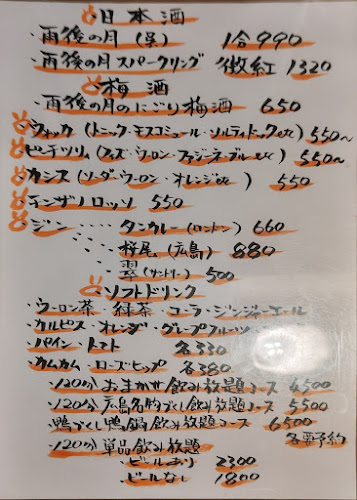 日本酒
・雨後の月(呉) 1合990
・雨後の月スパークリング 微紅 1320
梅酒
・雨後の月のにごり梅酒 650
ウォッカ(トニック・モスコミュール・ソルティドックetc) 550〜
ピーチツリー(フィズ・ウーロン・ファジーネーブルetc) 550〜
カシス(ソーダ・ウーロン・オレンジetc) 550
チンザノロッソ 550
ジン・・・・タンカレー(ロンドン) 660
・・・・桜尾(広島) 880
・・・・翠(サントリー) 500
ソフトドリンク
・ウーロン茶・緑茶・コーラ・ジンジャーエール
・カルピス・オレンヂ・グレープフルーツ
・パイン・トマト 各330
・カムカム・ローズヒップ 各380
・120分おまかせ飲み放題コース 4500
・120分広島名物づくし飲み放題コース 5500
・鴨づくし鴨鍋飲み放題コース 6500
各要予約
・120分単品飲み放題
・ビールあり 2300
・ビールなし 1800